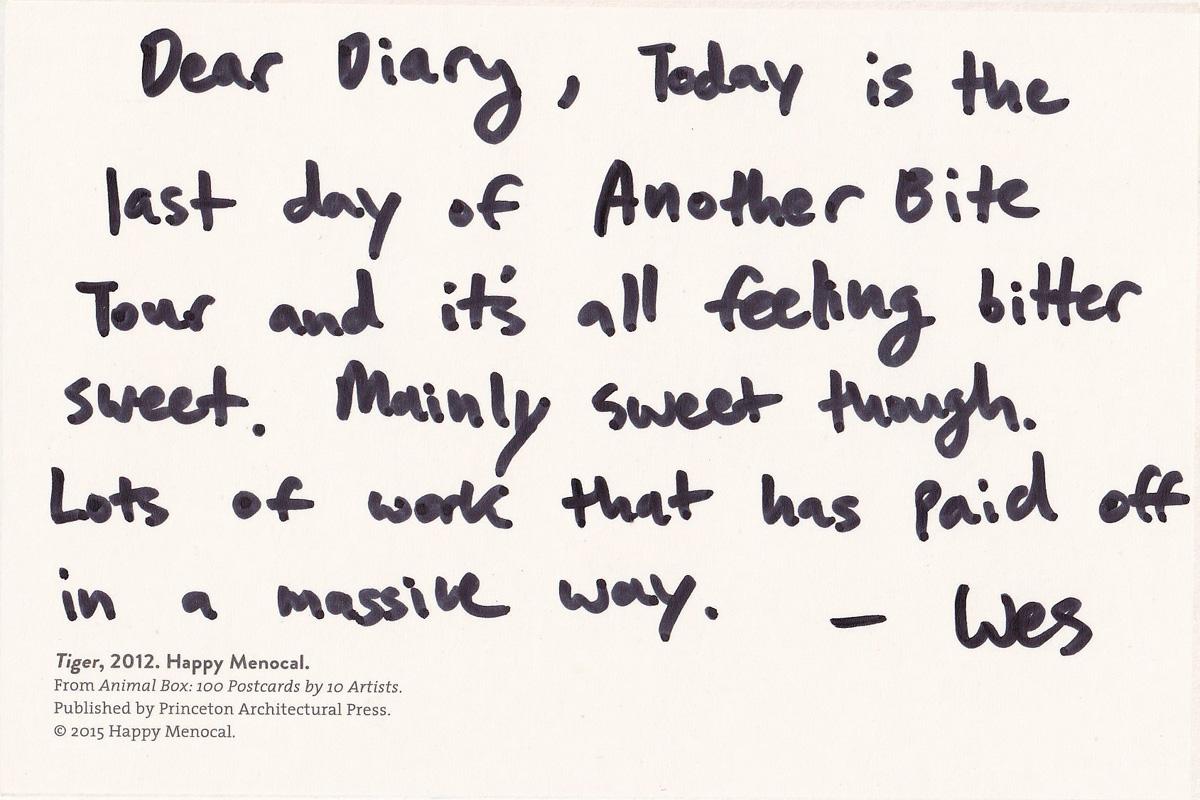 Dear Diary, Today is the
last day of Another Bite
Tour and it's all feeling bitter
sweet. Mainly sweet though.
Lots of work that has paid off
in a massive way. — Wes
Tiger, 2012. Happy Menocal.
From Animal Box: 100 Postcards by 10 Artists.
Published by Princeton Architectural Press.
© 2015 Happy Menocal.